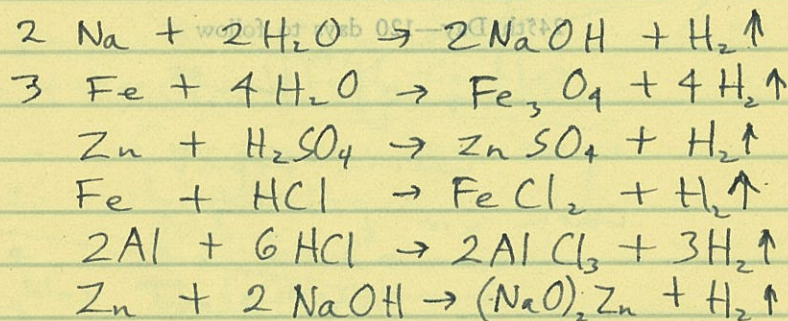 2 Na + 2H₂O → 2NaOH + H₂↑
3 Fe + 4H₂O → Fe₃O₄ + 4H₂↑
Zn + H₂SO₄ → ZnSO₄ + H₂↑
Fe + HCl → FeCl₂ + H₂↑
2Al + 6HCl → 2AlCl₃ + 3H₂↑
Zn + 2NaOH → (NaO)₂Zn + H₂↑